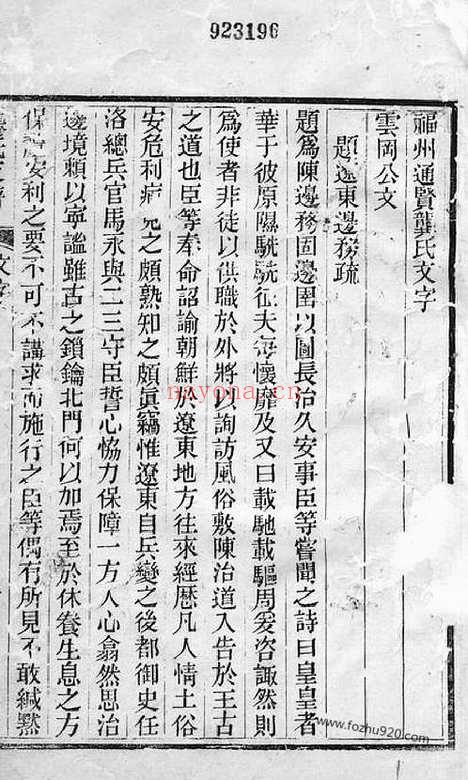 923196
福州通賢龔氏文字
雲岡公文
題遼東邊務疏
題爲陳邊務固邊圉以圖長治久安事臣等嘗聞之詩曰皇皇者
華于彼原隰駪駪征夫每懷靡及又曰載馳載驅周爰咨諏然則
爲使者非徒以供職於外將以詢訪風俗敷陳治道入告於王古
之道也臣等奉命詔諭朝鮮於遼東地方往來經歷凡人情土俗
安危利病見之頗熟知之頗眞竊惟遼東自兵變之後都御史任
洛總兵官馬永與二三守臣誓心恊力保障一方人心翕然思治
邊境頼以寧謐雖古之鎖鑰北門何以加焉至於休養生息之方
保安利之要不可不講求而施行之臣等偶有所見不敢緘黙
文字
nayona.cn
www.fozhu920.com